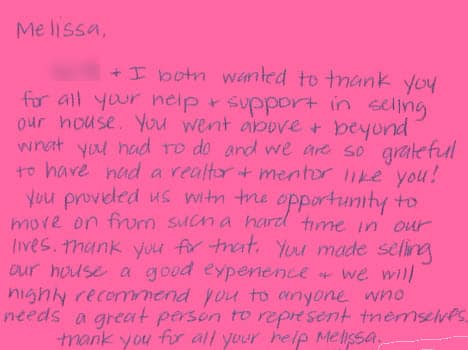 Melissa,
+ I both wanted to thank you
for all your help + support in seling
our house. You went above + beyond
what you had to do and we are so grateful
to have had a realtor + mentor like you!
You provided us with the opportunity to
move on from such a hard time in our
lives. Thank you for that. You made selling
our house a good experience + we will
highly recommend you to anyone who
needs a great person to represent themselves.
Thank you for all your help Melissa.